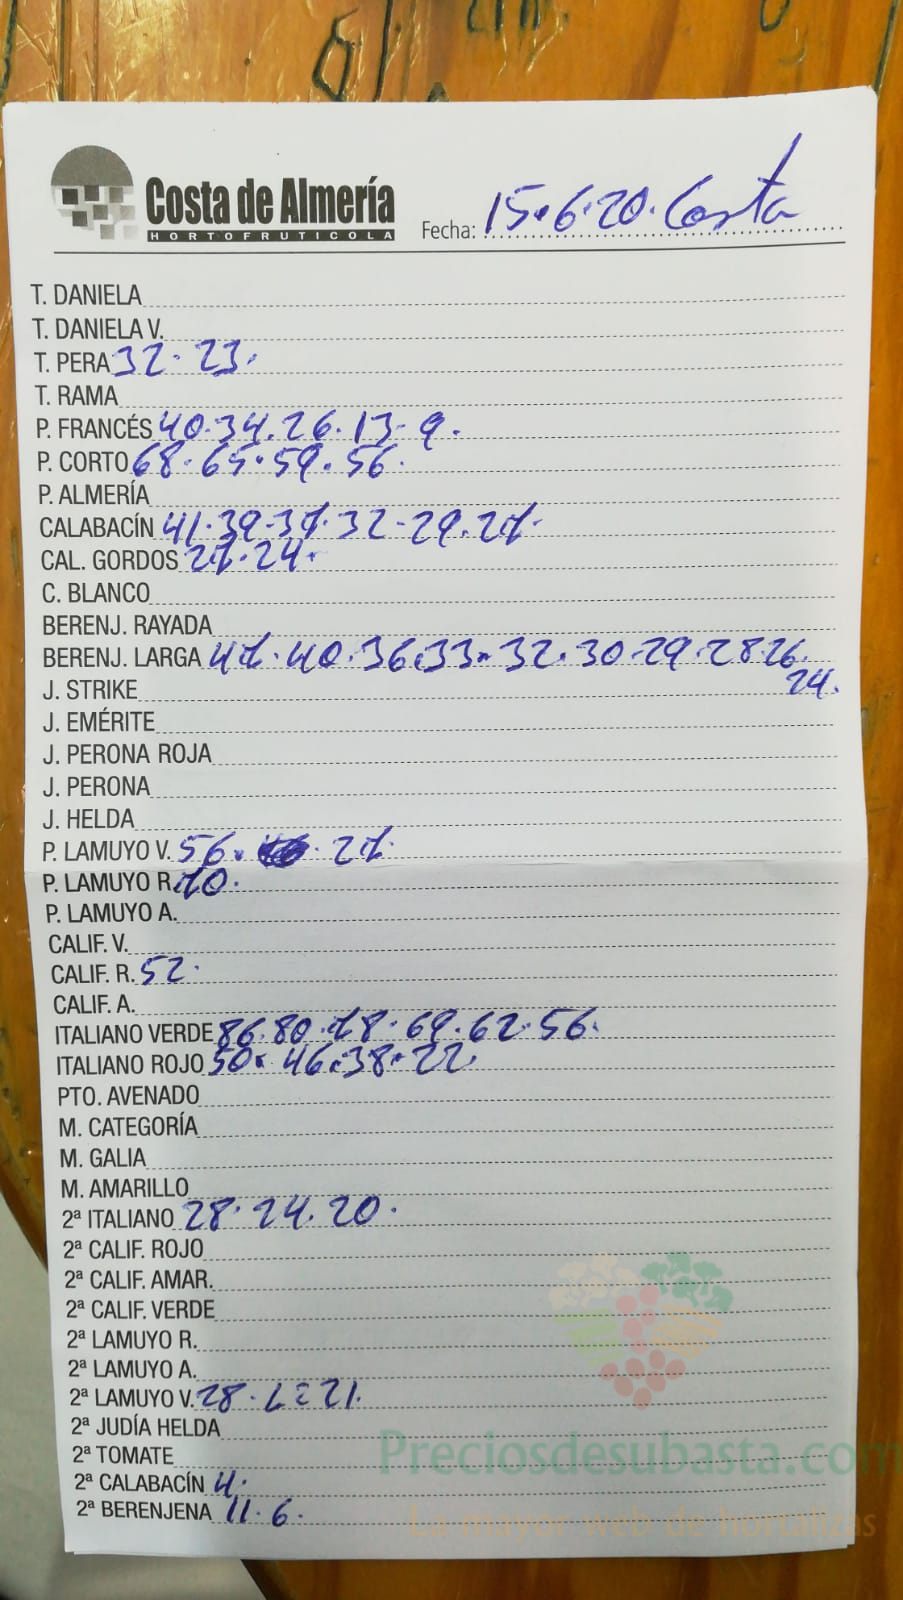 Costa de Almería
HORTOFRUTICOLA
Fecha: 15.6.20. Costa
T. DANIELA
T. DANIELA V.
T. PERA 32. 23.
T. RAMA
P. FRANCÉS 40.34.26.13.9.
P. CORTO 68.65.59.56.
P. ALMERÍA
CALABACÍN 41.39.37.32.29.27.
CAL. GORDOS 27.24.
C. BLANCO
BERENJ. RAYADA
BERENJ. LARGA 47.40.36.33.32.30.29.28.26.
24.
J. STRIKE
J. EMÉRITE
J. PERONA ROJA
J. PERONA
J. HELDA
P. LAMUYO V. 56. 27.
P. LAMUYO R. 70.
P. LAMUYO A.
CALIF. V.
CALIF. R. 52.
CALIF. A.
ITALIANO VERDE 86.80.78.69.62.56.
ITALIANO ROJO 50.46.38.22.
PTO. AVENADO
M. CATEGORÍA
M. GALIA
M. AMARILLO
2ª ITALIANO 28.24.20.
2ª CALIF. ROJO
2ª CALIF. AMAR.
2ª CALIF. VERDE
2ª LAMUYO R.
2ª LAMUYO A.
2ª LAMUYO V. 28. 21.
2ª JUDÍA HELDA
2ª TOMATE
2ª CALABACÍN 4.
2ª BERENJENA 11.6.
Preciosdesubasta.com
La mayor web de hortalizas